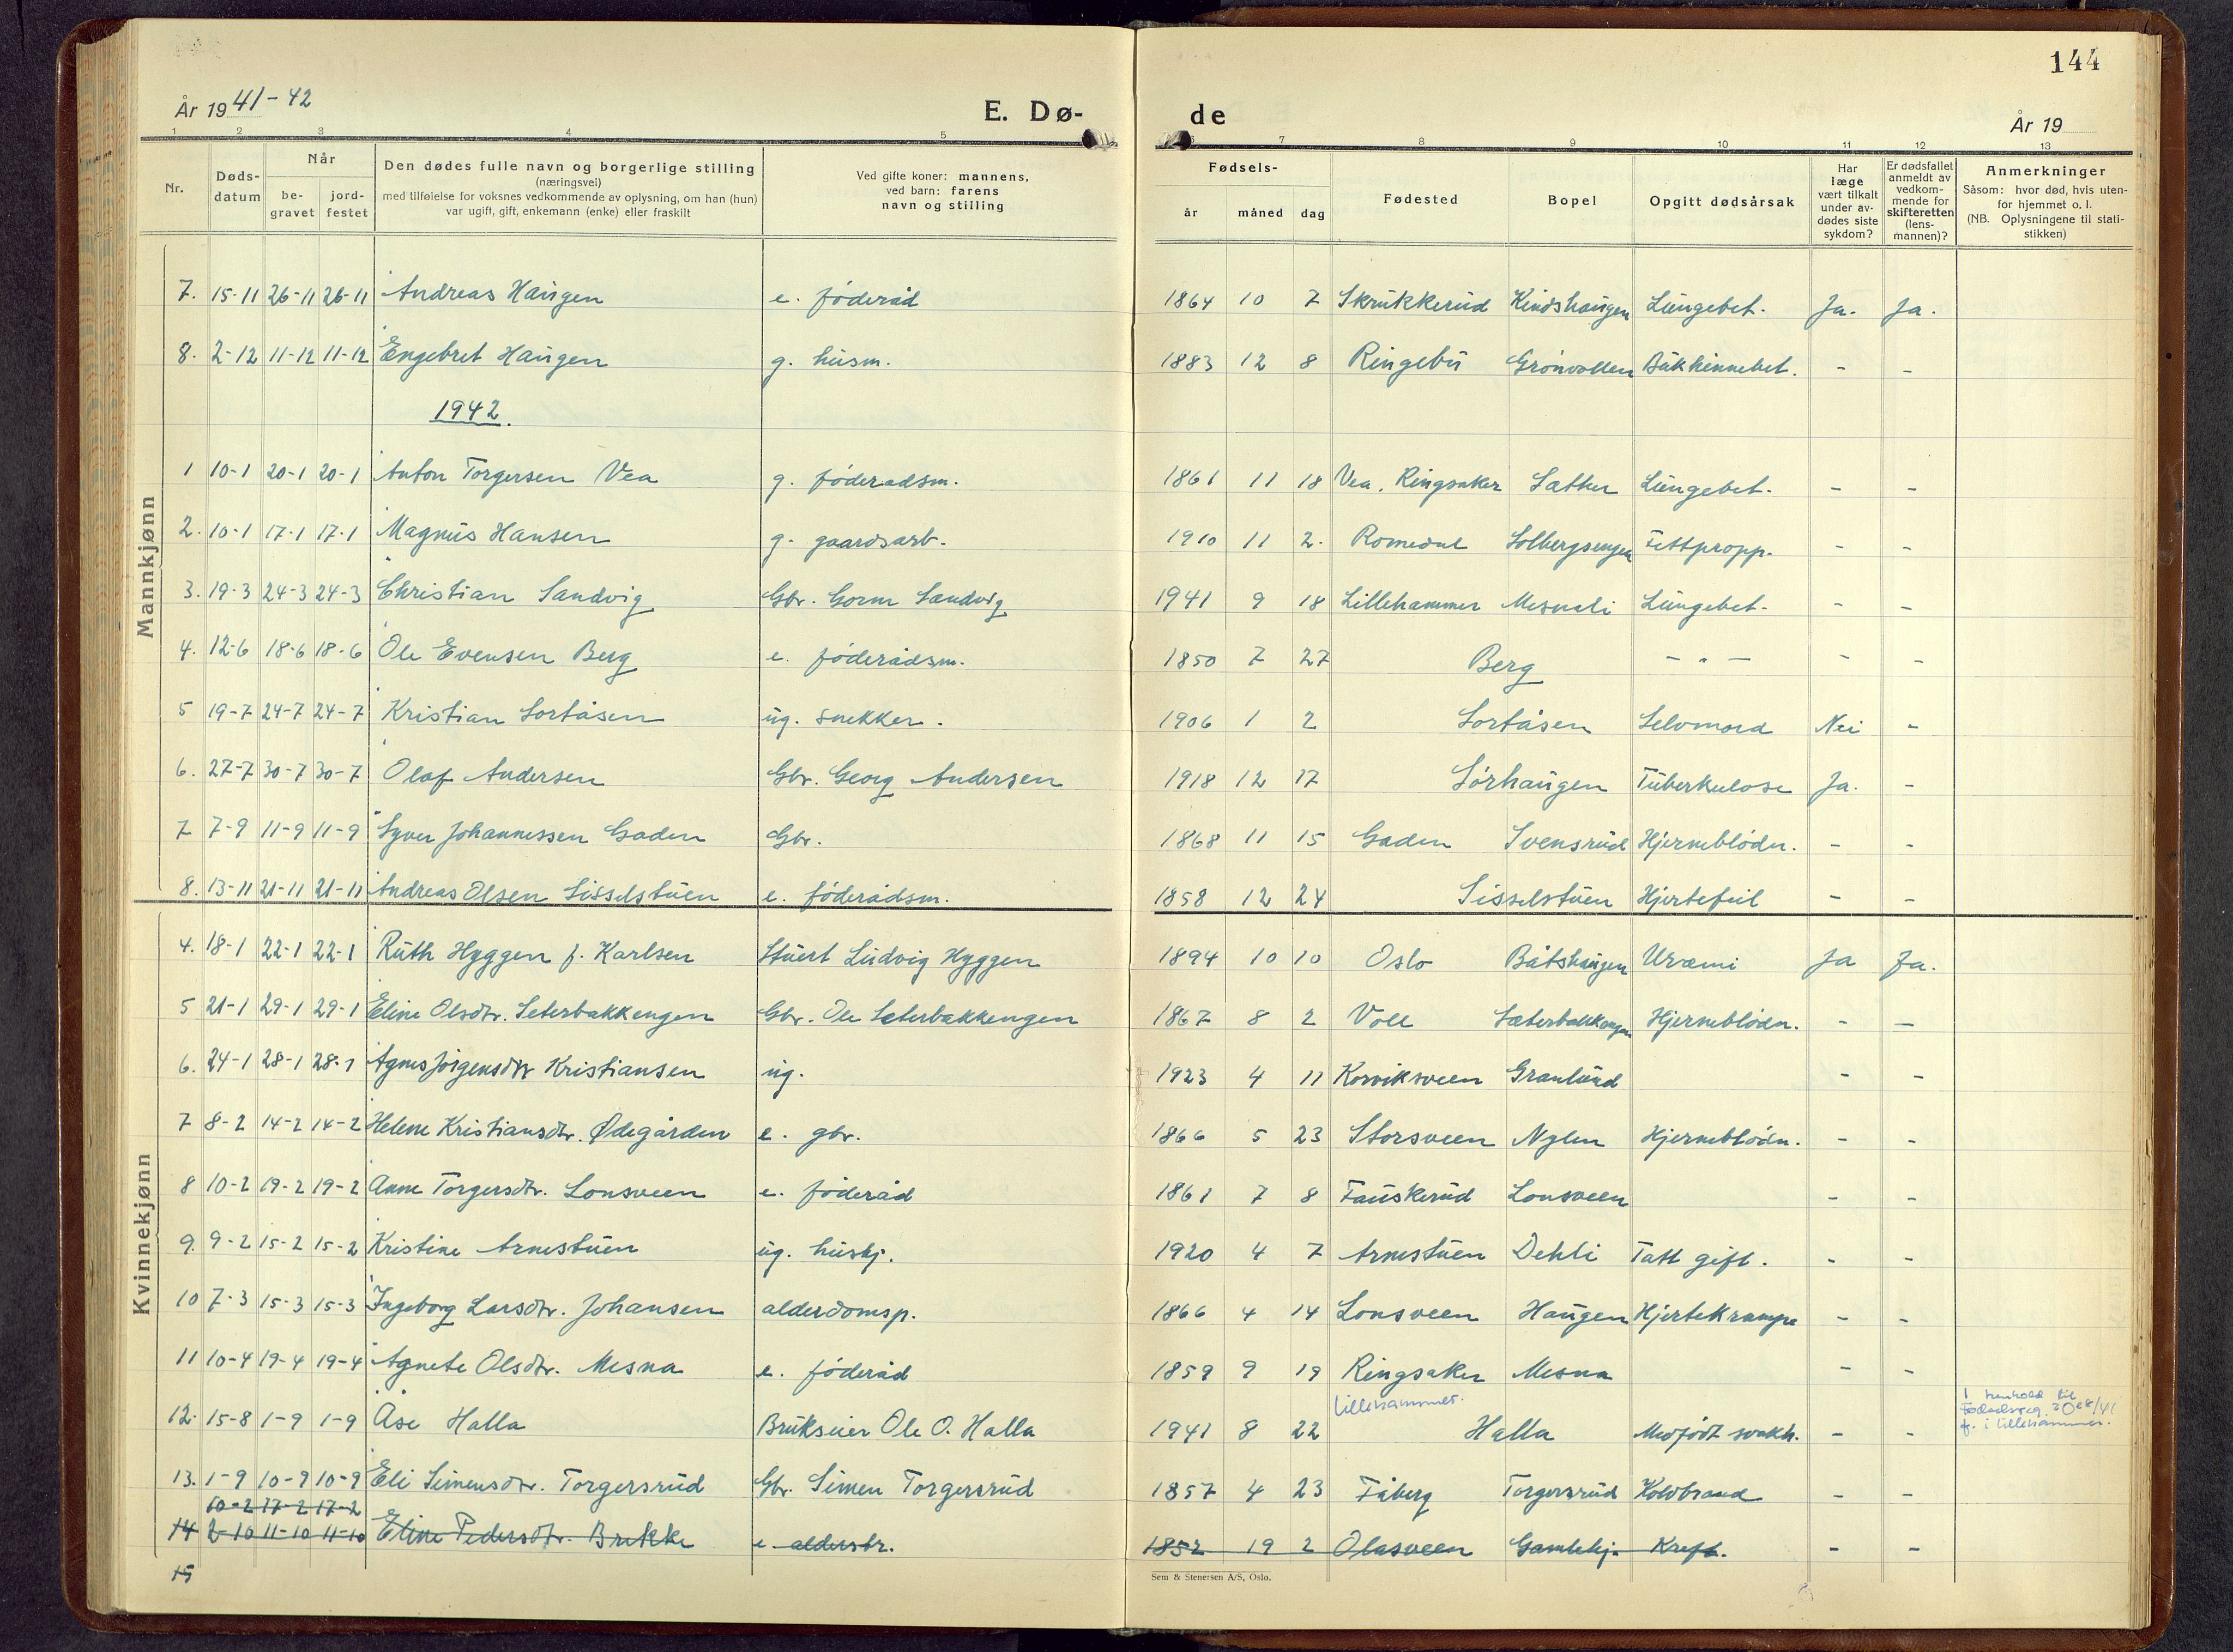 144
År 1941-42
E. Dø-
de
År 19
1 2 3 4 5 7 8 9 10 11 12 13
Nr.
Døds-
datum
Når
be-
gravet
jord-
festet
Den dødes fulle navn og borgerlige stilling
(næringsvei)
med tilføielse for voksnes vedkommende av oplysning, om han (hun)
var ugift, gift, enkemann (enke) eller fraskilt
Ved gifte koner: mannens,
ved barn: farens
navn og stilling
Fødsels-
år måned dag
Fødested
Bopel
Opgitt dødsårsak
Har
læge
vært tilkalt
under av-
dødes siste
sykdom?
Er dødsfallet
anmeldt av
vedkom-
mende for
skifteretten
(lens-
mannen)?
Anmerkninger
Såsom: hvor død, hvis uten-
for hjemmet o. l.
(NB. Oplysningene til stati-
stikken)
Mannkjønn
7. 15-11 26-11 26-11 Andreas Haugen e. föderåd 1864 10 7 Skrukkerud Kindshaugen Lungebet. Ja. Ja.
8. 2-12 11-12 11-12 Engebret Haugen g. husm. 1883 12 8 Ringebu Grönvollen Bukhinnebet. - -
1942.
1 10-1 20-1 20-1 Anton Torgersen Vea g. föderadsm. 1861 11 18 Vea, Ringsaker Sæther Lungebet. - -
2. 10-1 17-1 17-1 Magnus Hansen g. gaardsarb. 1910 11 2. Romedal Solbergsengen Fettpropp. - -
3. 19-3 24-3 24-3 Christian Sandvig Gbr. Gorm Sandvig 1941 9 18 Lillehammer Mesnali Lungebet. - -
4. 12-6 18-6 18-6 Ole Evensen Berg e. föderådsm. 1850 7 27 Berg - " - - -
5 19-7 24-7 24-7 Kristian Sortåsen ug. snekker. 1906 1 2 Sortåsen Selvmord Nei -
6. 27-7 30-7 30-7 Olaf Andersen Gbr. Georg Andersen 1918 12 17 Sörhaugen Tuberkulose Ja. -
7 7-9 11-9 11-9 Syver Johannessen Gaden Gbr. 1868 11 15 Gaden Svensrud Hjerneblödn. - -
8. 13-11 21-11 21-11 Andreas Olsen Sisselstuen e. föderådsm. 1858 12 24 Sisselstuen Hjertefeil - -
Kvinnekjønn
4. 18-1 22-1 22-1 Ruth Hyggen f. Karlsen Stuert Ludvig Hyggen 1894 10 10 Oslo Båtshaugen Uræmi Ja Ja.
5 21-1 29-1 29-1 Eline Olsdtr. Seterbakkengen Gbr. Ole Seterbakkengen 1867 8 2 Voll Sæterbakkengen Hjerneblödn. - -
6. 24-1 28-1 28-1 Agnes Jörgensdtr Kristiansen ug. 1923 4 11 Korviksveen Granlund - -
7 8-2 14-2 14-2 Helene Kristiansdtr. Ødegården e. gbr. 1866 5 23 Storsveen Nylen Hjerneblödn. - -
8 10-2 19-2 19-2 Anne Torgersdtr. Lonsveen e. föderåd 1861 7 8 Fauskerud Lonsveen - -
9. 9-2 15-2 15-2 Kristine Arnestuen ug. hushj. 1920 4 7 Arnestuen Dehli Tatt gift. - -
10 7-3 15-3 15-3 Ingeborg Larsdtr. Johansen alderdomsp. 1866 4 14 Lonsveen Haugen Hjertekrampe - -
11 10-4 19-4 19-4 Agnete Olsdtr. Mesna e. föderåd 1859 9 19 Ringsaker Mesna - -
12. 15-8 1-9 1-9 Åse Halla Brukseier Ole O. Halla 1941 8 22 Lillehammer. Halla Medfödt svakh. - - I henhold til
Fødselsreg. 30e8/41
f. i Lillehammer.
13. 1-9 10-9 10-9 Eli Simensdtr. Torgersrud Gbr. Simen Torgersrud 1857 4 23 Fåberg Torgersrud Koldbrand - -
10-2 17-2 17-2
14 2-10 11-10 11-10 Eline Pedersdtr. Brekke e. aldersbr. 1852 19 2 Olasveen Gamlehj. Kreft. - -
15
Sem & Stenersen A/S, Oslo.